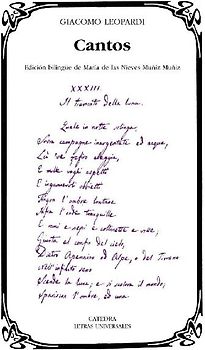 GIACOMO LEOPARDI
Cantos
Edición bilingüe de María de las Nieves Muñiz Muñiz
XXXIII
Il tramonto della luna.
Quale in notte solinga,
Sovra campagne inargentate ed acque,
Là 've zefiro aleggia,
E mille vaghi aspetti
E ingannevoli obbietti
Fingon l'ombre lontane
Infra l'onde tranquille
E rami e siepi e collinette e ville;
Giunta al confin del cielo,
Dietro Apennino od Alpe, o del Tirreno
Nell'infinito seno
Scende la luna; e si scolora il mondo;
Spariscon l'ombre, ed una
CATEDRA
LETRAS UNIVERSALES